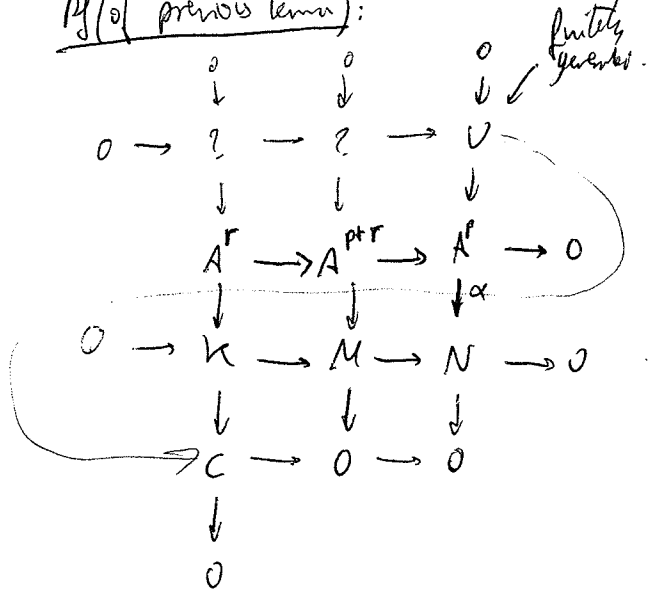 Pf (of previous lemma):
finitely
generated.
0 0 0
0 → ? → ? → U
A^r → A^{p+r} → A^p → 0
α
0 → K → M → N → 0
C → 0 → 0
0